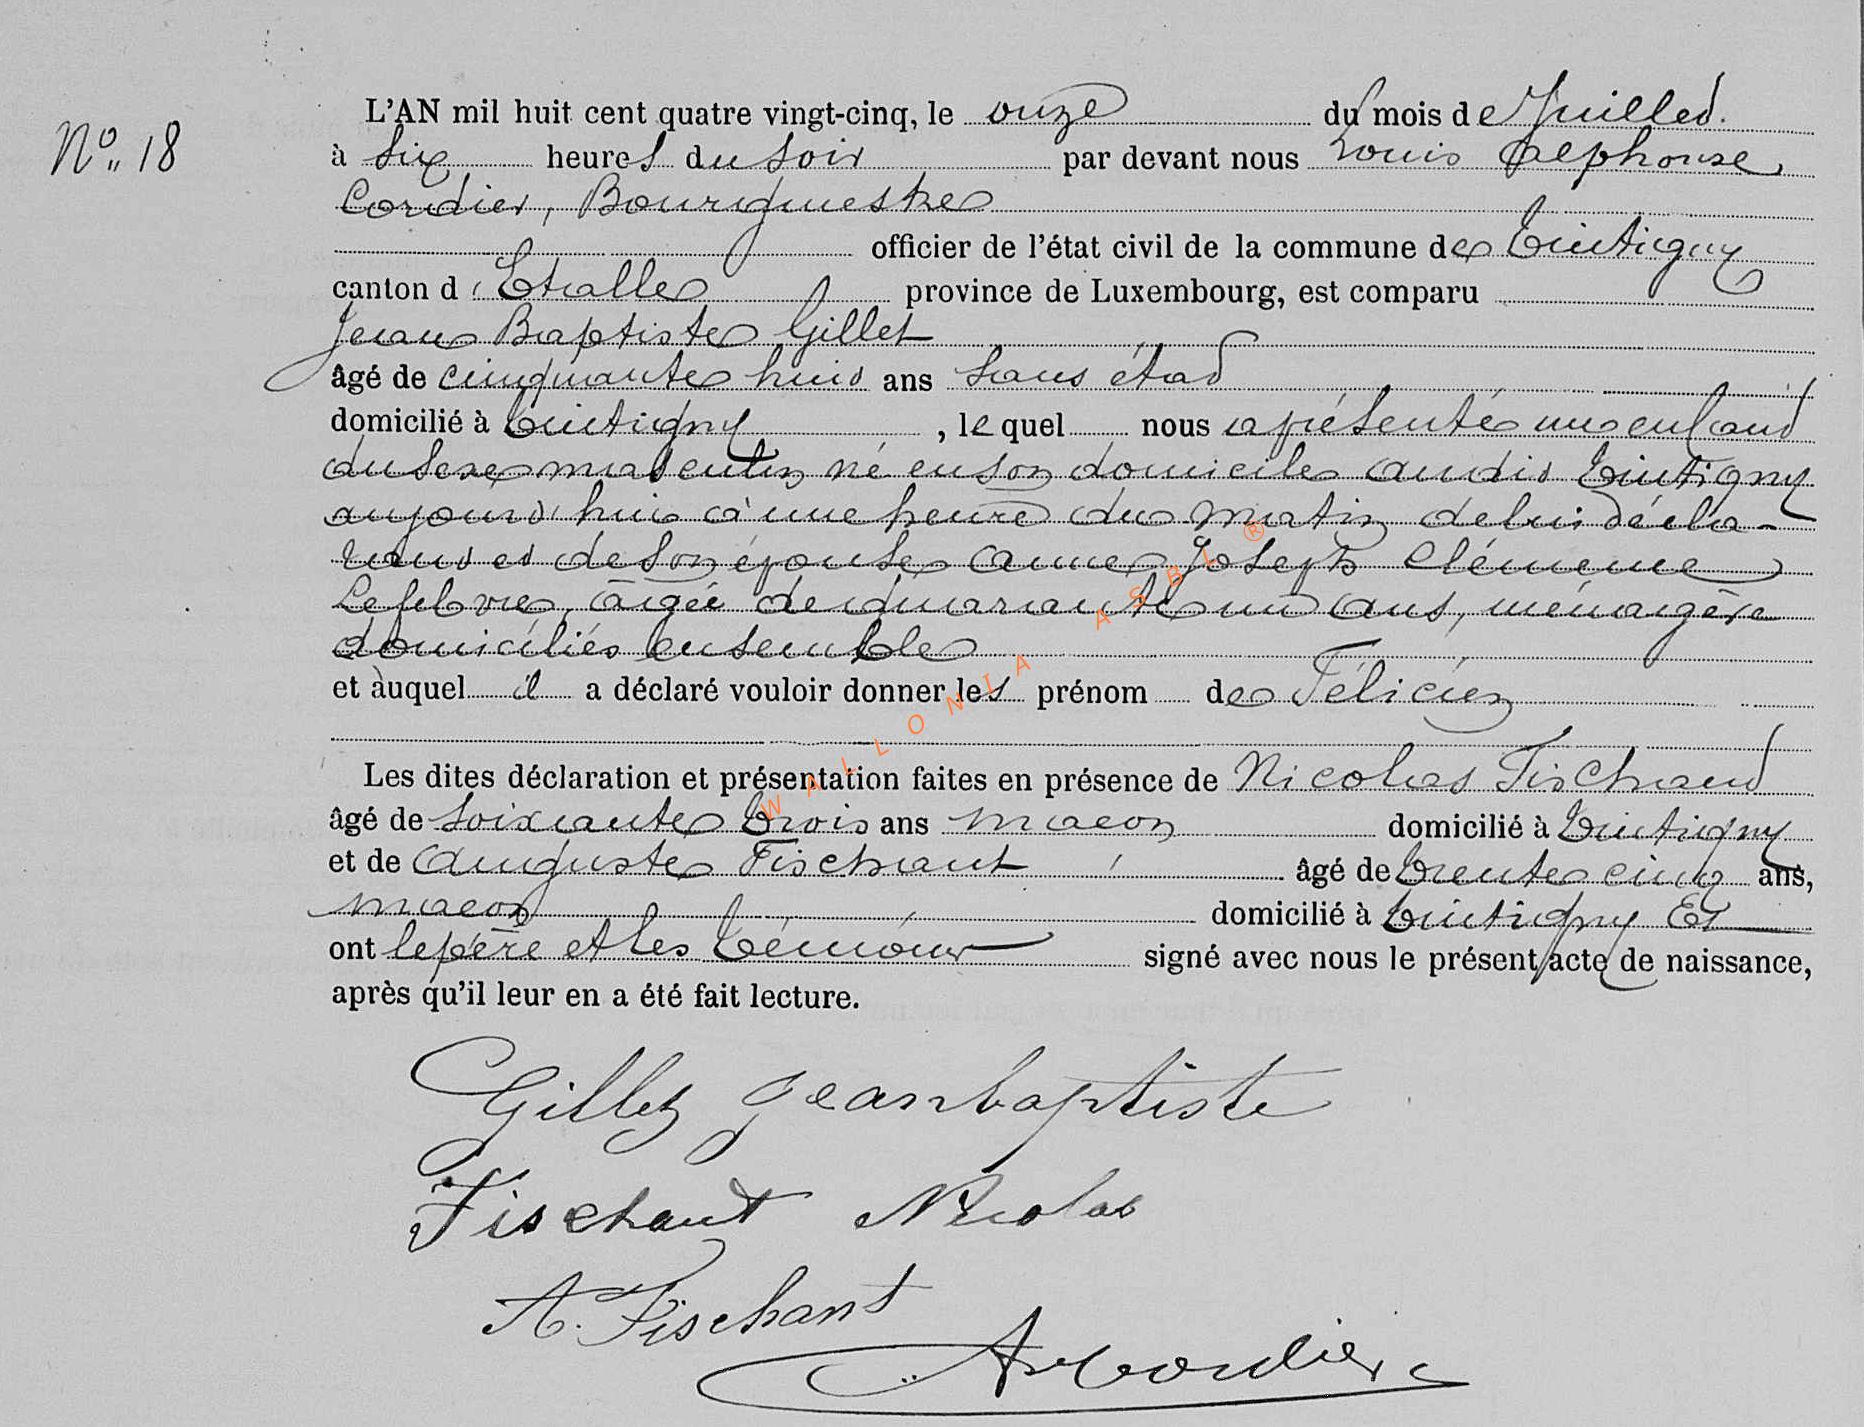 N° 18
L'AN mil huit cent quatre vingt-cinq, le onze du mois de Juillet.
à six heures du soir par devant nous Louis Alphonse
Cordier, Bourgmestre
officier de l'état civil de la commune de Tintigny
canton d'Etalle province de Luxembourg, est comparu
Jean Baptiste Gillet
âgé de cinquante huit ans sans état
domicilié à Tintigny, lequel nous a présenté un enfant
du sexe masculin né en son domicile audit Tintigny
aujourd'hui à une heure du matin de lui décla-
rant et de son épouse Anne Joseph Clémence
Lefebvre, âgée de quarante un ans, ménagère
domiciliés ensemble
et auquel il a déclaré vouloir donner les prénom de Félicien
Les dites déclaration et présentation faites en présence de Nicolas Fischant
âgé de soixante trois ans macon domicilié à Tintigny
et de Auguste Fischant âgé de trente cinq ans,
macon domicilié à Tintigny Et
ont le père et les témoins signé avec nous le présent acte de naissance,
après qu'il leur en a été fait lecture.
Gillet Jean baptiste
Fischant Nicolas
A. Fischant
A Cordier
WALLONIA ASBL ®